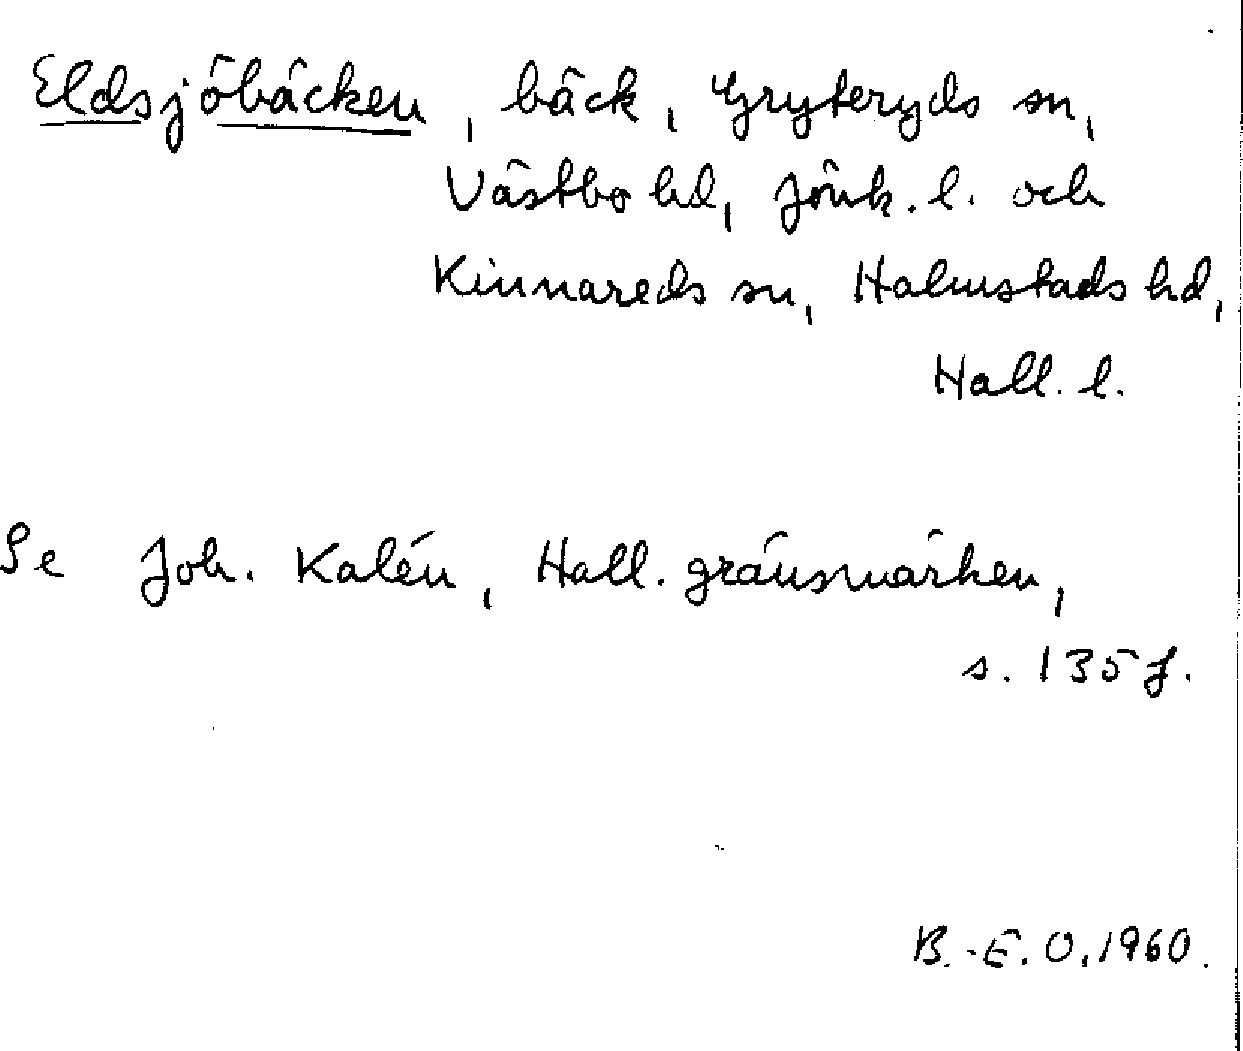 Eldsjöbäcken, bäck, Gryteryds sn,
Västbo hd, Jönk. l. och
Kinnareds sn, Halmstads hd,
Hall. l.
Se Joh. Kalén, Hall. gränsmärken,
s. 135 f.
B.-E. O, 1960.